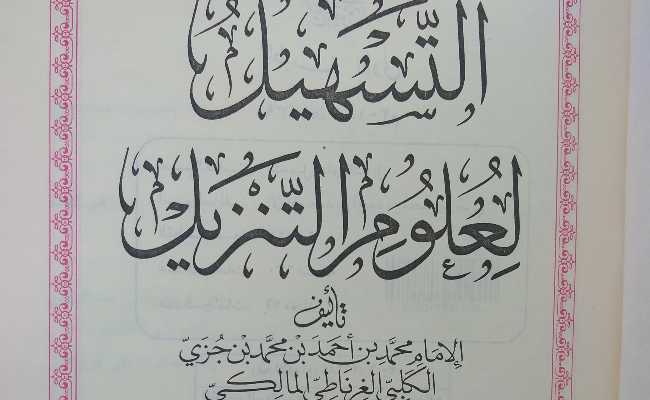 التسهيل
لعلوم التنزيل
تأليف
الإمام محمد بن أحمد بن محمد بن جزي
الكلبي الغرناطي المالكي